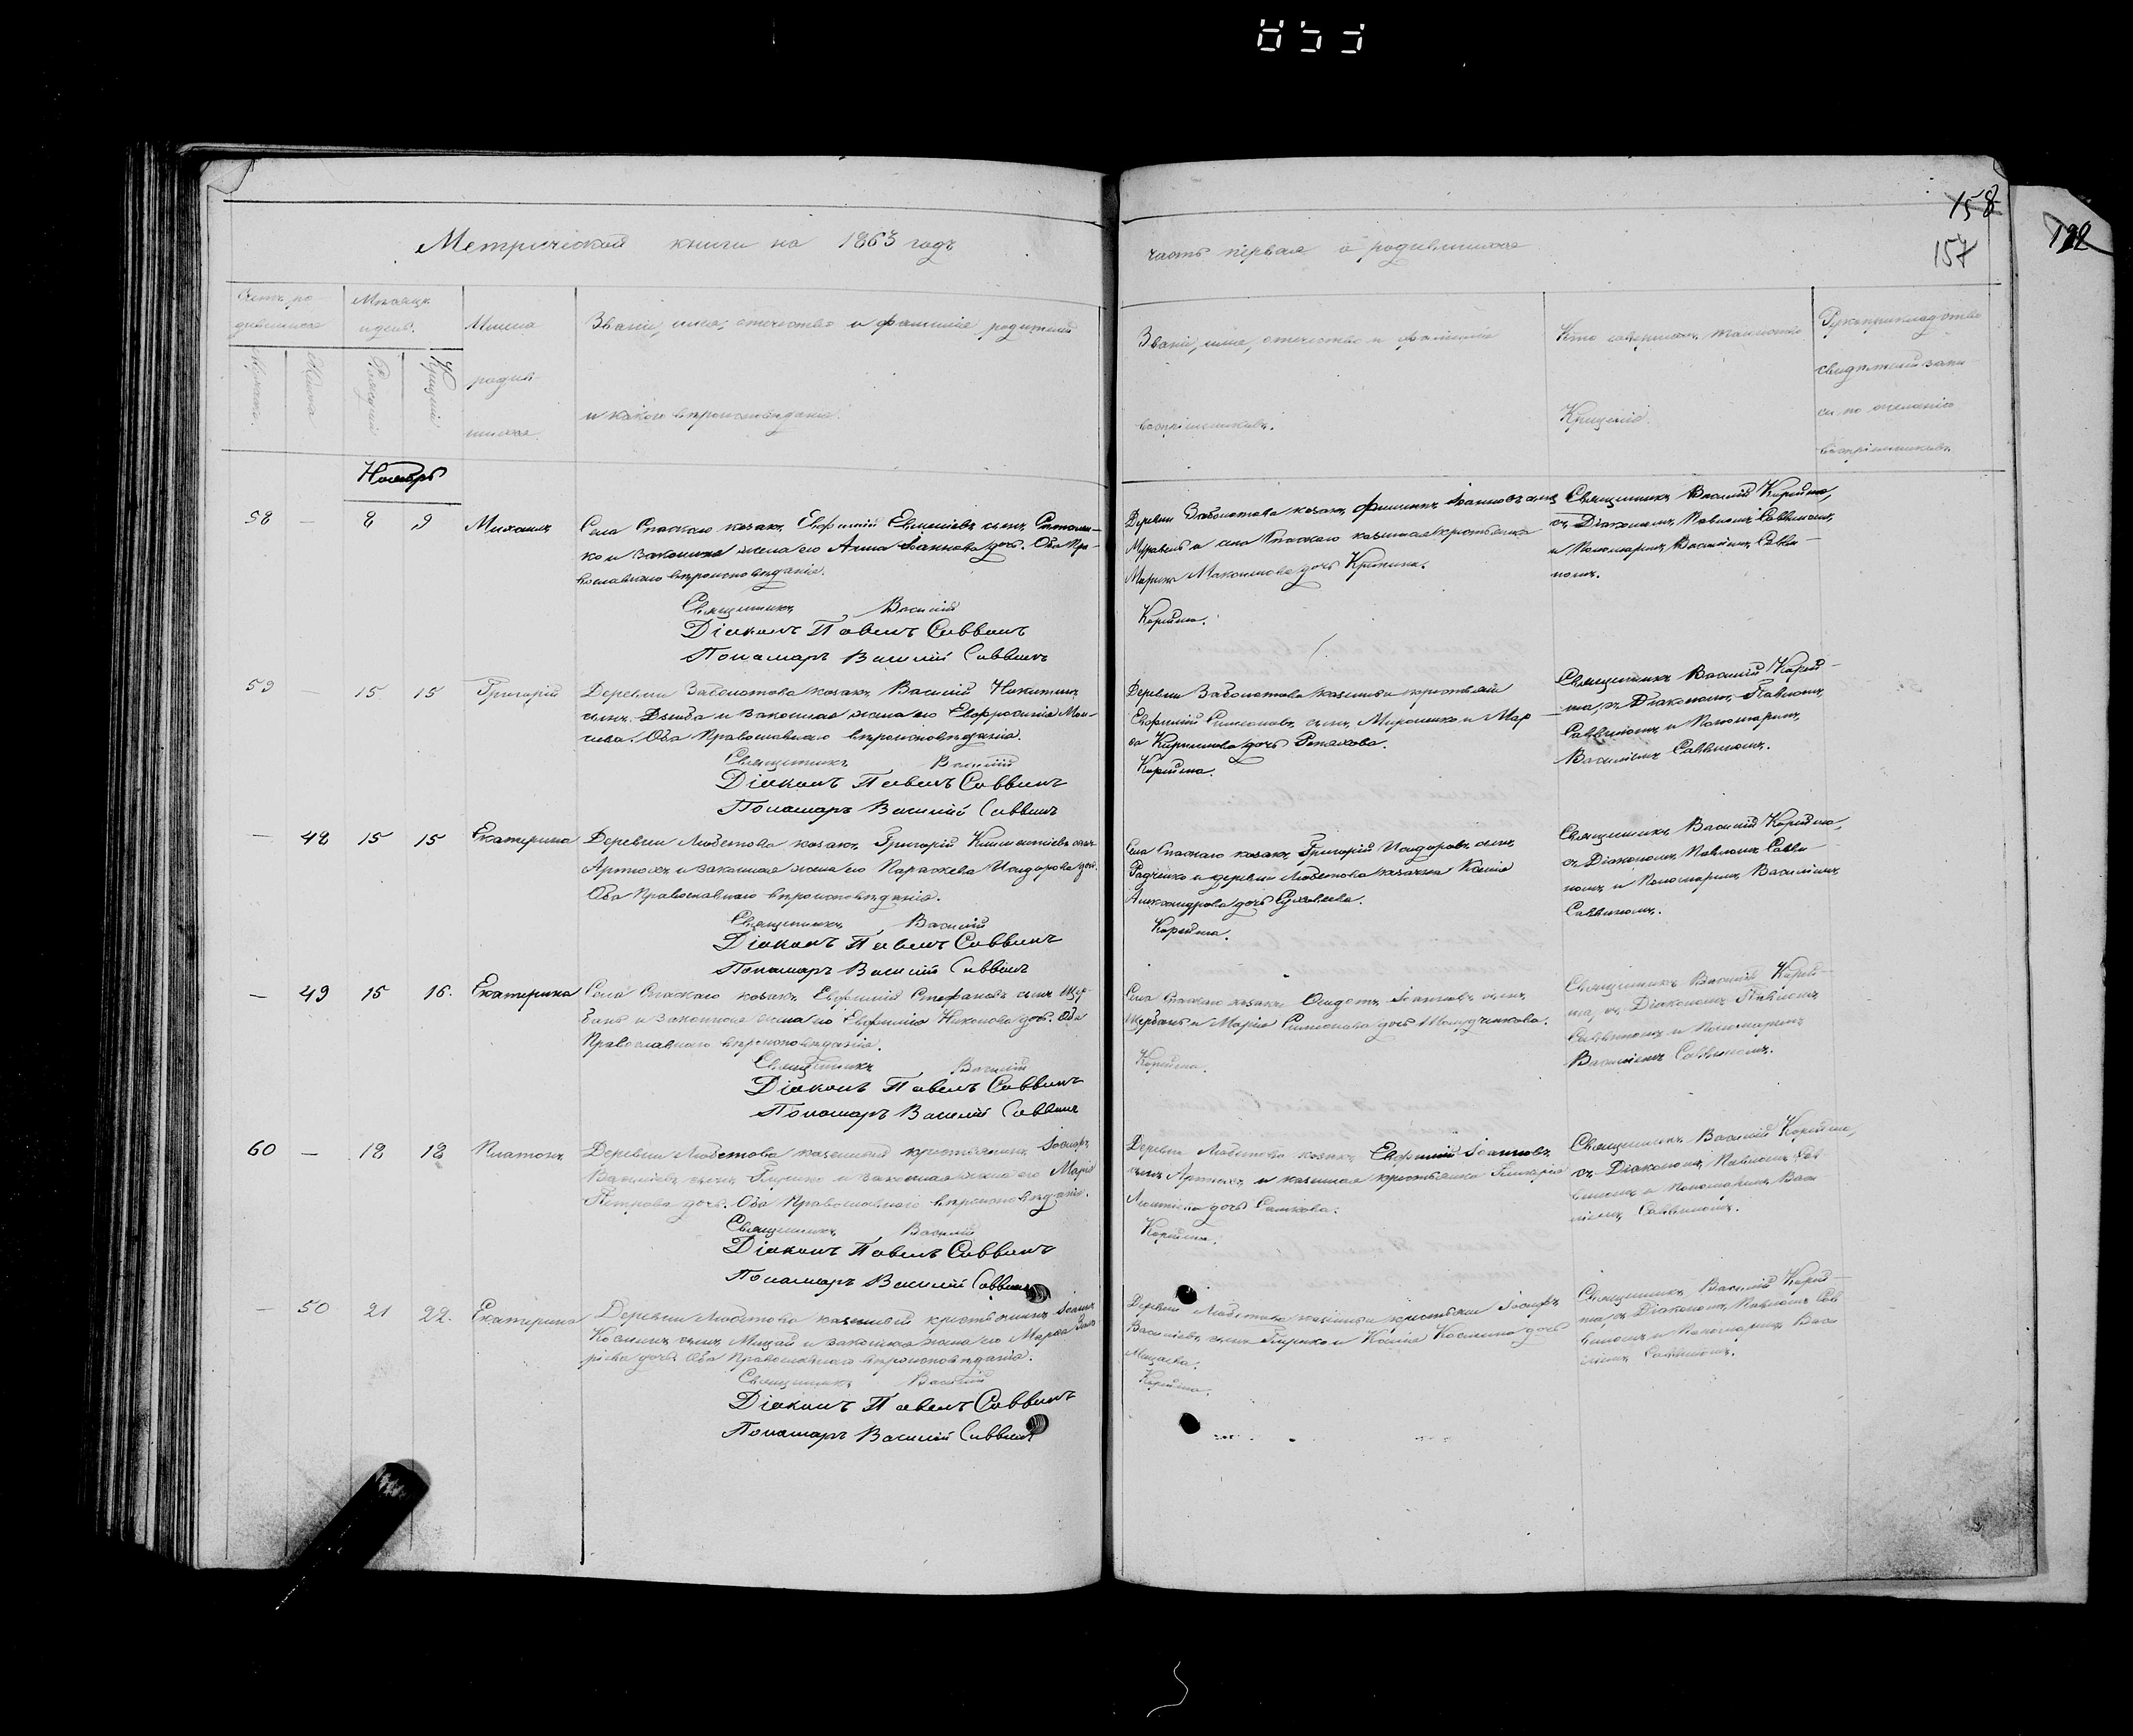 158
157
Метрической книги на 1863 годъ
часть первая о родившихся
Счетъ ро-
дившихся
Мужеска.
Женска
Мѣсяцъ
и день.
Рожденія
Крещенія
Имена
родив-
шихся.
Званіе, имя, отечество и фамилія родителей
и какого вѣроисповѣданія.
Званіе, имя, отечество и фамилія
воспріемниковъ.
Кто совершалъ таинство
Крещенія.
Рукоприкладство
свидѣтелей запи-
си по желанію
воспріемниковъ.
Ноябрь
58 — 8 9 Михаилъ
Села Спаскаго козакъ, Евфимій сынъ
ко и законная жена его Анна Іоаннова дочь. Оба Пра-
вославнаго вѣроисповѣданія.
Священникъ Василій
Діаконъ Павелъ Саввинъ
Пономарь Василій Саввинъ
Деревни Заболотова козакъ, Филиппъ Іоанновъ сынъ
Муравель и села Спаскаго казенная крестьянка
Марина Максимова дочь
Корейша.
Священникъ Василій Корейша,
съ Діакономъ, Павломъ Саввиномъ,
и Пономаремъ, Василіемъ Савви-
номъ.
59 — 15 15 Григорій
Деревни Заболотова козакъ, Василій Никитинъ
сынъ, Дзюба и законная жена его Евфросинія
Оба Православнаго вѣроисповѣданія.
Священникъ Василій
Діаконъ Павелъ Саввинъ
Пономарь Василій Саввинъ
Деревни Заболотова казенный крестьянинъ
Евфимій Симеоновъ, сынъ, Мирошенко и Мар
Кирилова дочь
Корейша.
Священникъ Василій Корей-
ша, съ Діакономъ, Павломъ
Саввиномъ и Пономаремъ,
Василіемъ Саввиномъ.
— 48 15 15 Екатерина
Деревни Любетова козакъ, Григорій сынъ
Артюхъ и законная жена его Параскева Исидорова доч.
Оба Православнаго вѣроисповѣданія.
Священникъ Василій
Діаконъ Павелъ Саввинъ
Пономарь Василій Саввинъ
Села Спаскаго козакъ, Григорій Исидоровъ, сынъ
Радченко и деревни Любетова казачка Ксенія
Александрова дочь
Корейша.
Священникъ Василій Корейша,
съ Діакономъ, Павломъ Савви-
номъ и Пономаремъ, Василіемъ
Саввиномъ.
— 49 15 16. Екатерина
Села Спаскаго козакъ, Евфимій Стефановъ сынъ Щер-
бакъ и законная жена его Евфимія Никонова доч. Оба
Православнаго вѣроисповѣданія.
Священникъ Василій
Діаконъ Павелъ Саввинъ
Пономарь Василій Саввинъ
Села Спаскаго козакъ, Іоанновъ сынъ,
Щербакъ и Марія Симеонова дочь
Корейша.
Священникъ Василій Корей-
ша, съ Діакономъ Павломъ
Саввиномъ и Пономаремъ
Василіемъ Саввиномъ.
60 — 18 18 Платонъ
Деревни Любетова казенный крестьянинъ, Іосифъ
Василіевъ сынъ, Глушко и законная жена его Марія
Петрова дочь. Оба Православнаго вѣроисповѣданія.
Священникъ Василій
Діаконъ Павелъ Саввинъ
Пономарь Василій Саввинъ
Деревни Любетова козакъ Евфимій Іоанновъ
сынъ, Артюхъ и казенная крестьянка Гликерія
дочь
Корейша.
Священникъ Василій Корейша,
съ Діакономъ, Павломъ Сав-
виномъ и Пономаремъ, Васи-
ліемъ Саввиномъ.
— 50 21 22. Екатерина
Деревни Любетова казенный крестьянинъ Іоаннъ
Косминъ сынъ, Мицай и законная жена его Марѳа
дочь. Оба Православнаго вѣроисповѣданія.
Священникъ Василій
Діаконъ Павелъ Саввинъ
Пономарь Василій Саввинъ
Деревни Любетова казенный крестьянинъ Іосифъ,
Василіевъ сынъ Глушко и Ксенія Космина дочь
Мицаева.
Корейша.
Священникъ Василій Корей-
ша, съ Діакономъ, Павломъ Сав-
виномъ и Пономаремъ, Васи-
ліемъ Саввиномъ.